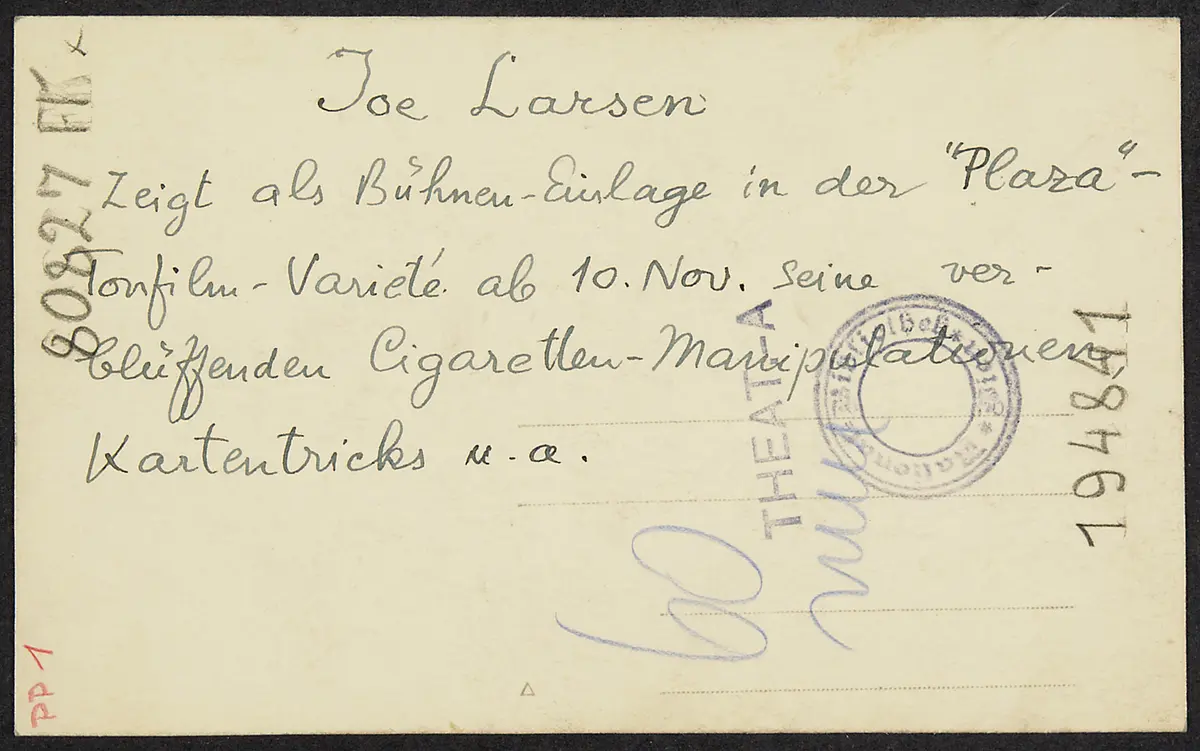 Joe Larsen
Zeigt als Bühnen-Einlage in der "Plaza"-
Tonfilm-Varieté ab 10. Nov. seine ver-
blüffenden Cigaretten-Manipulationen,
Kartentricks u. a.
80827 FK x
THEAT-A
60 mm
194841
PP 1